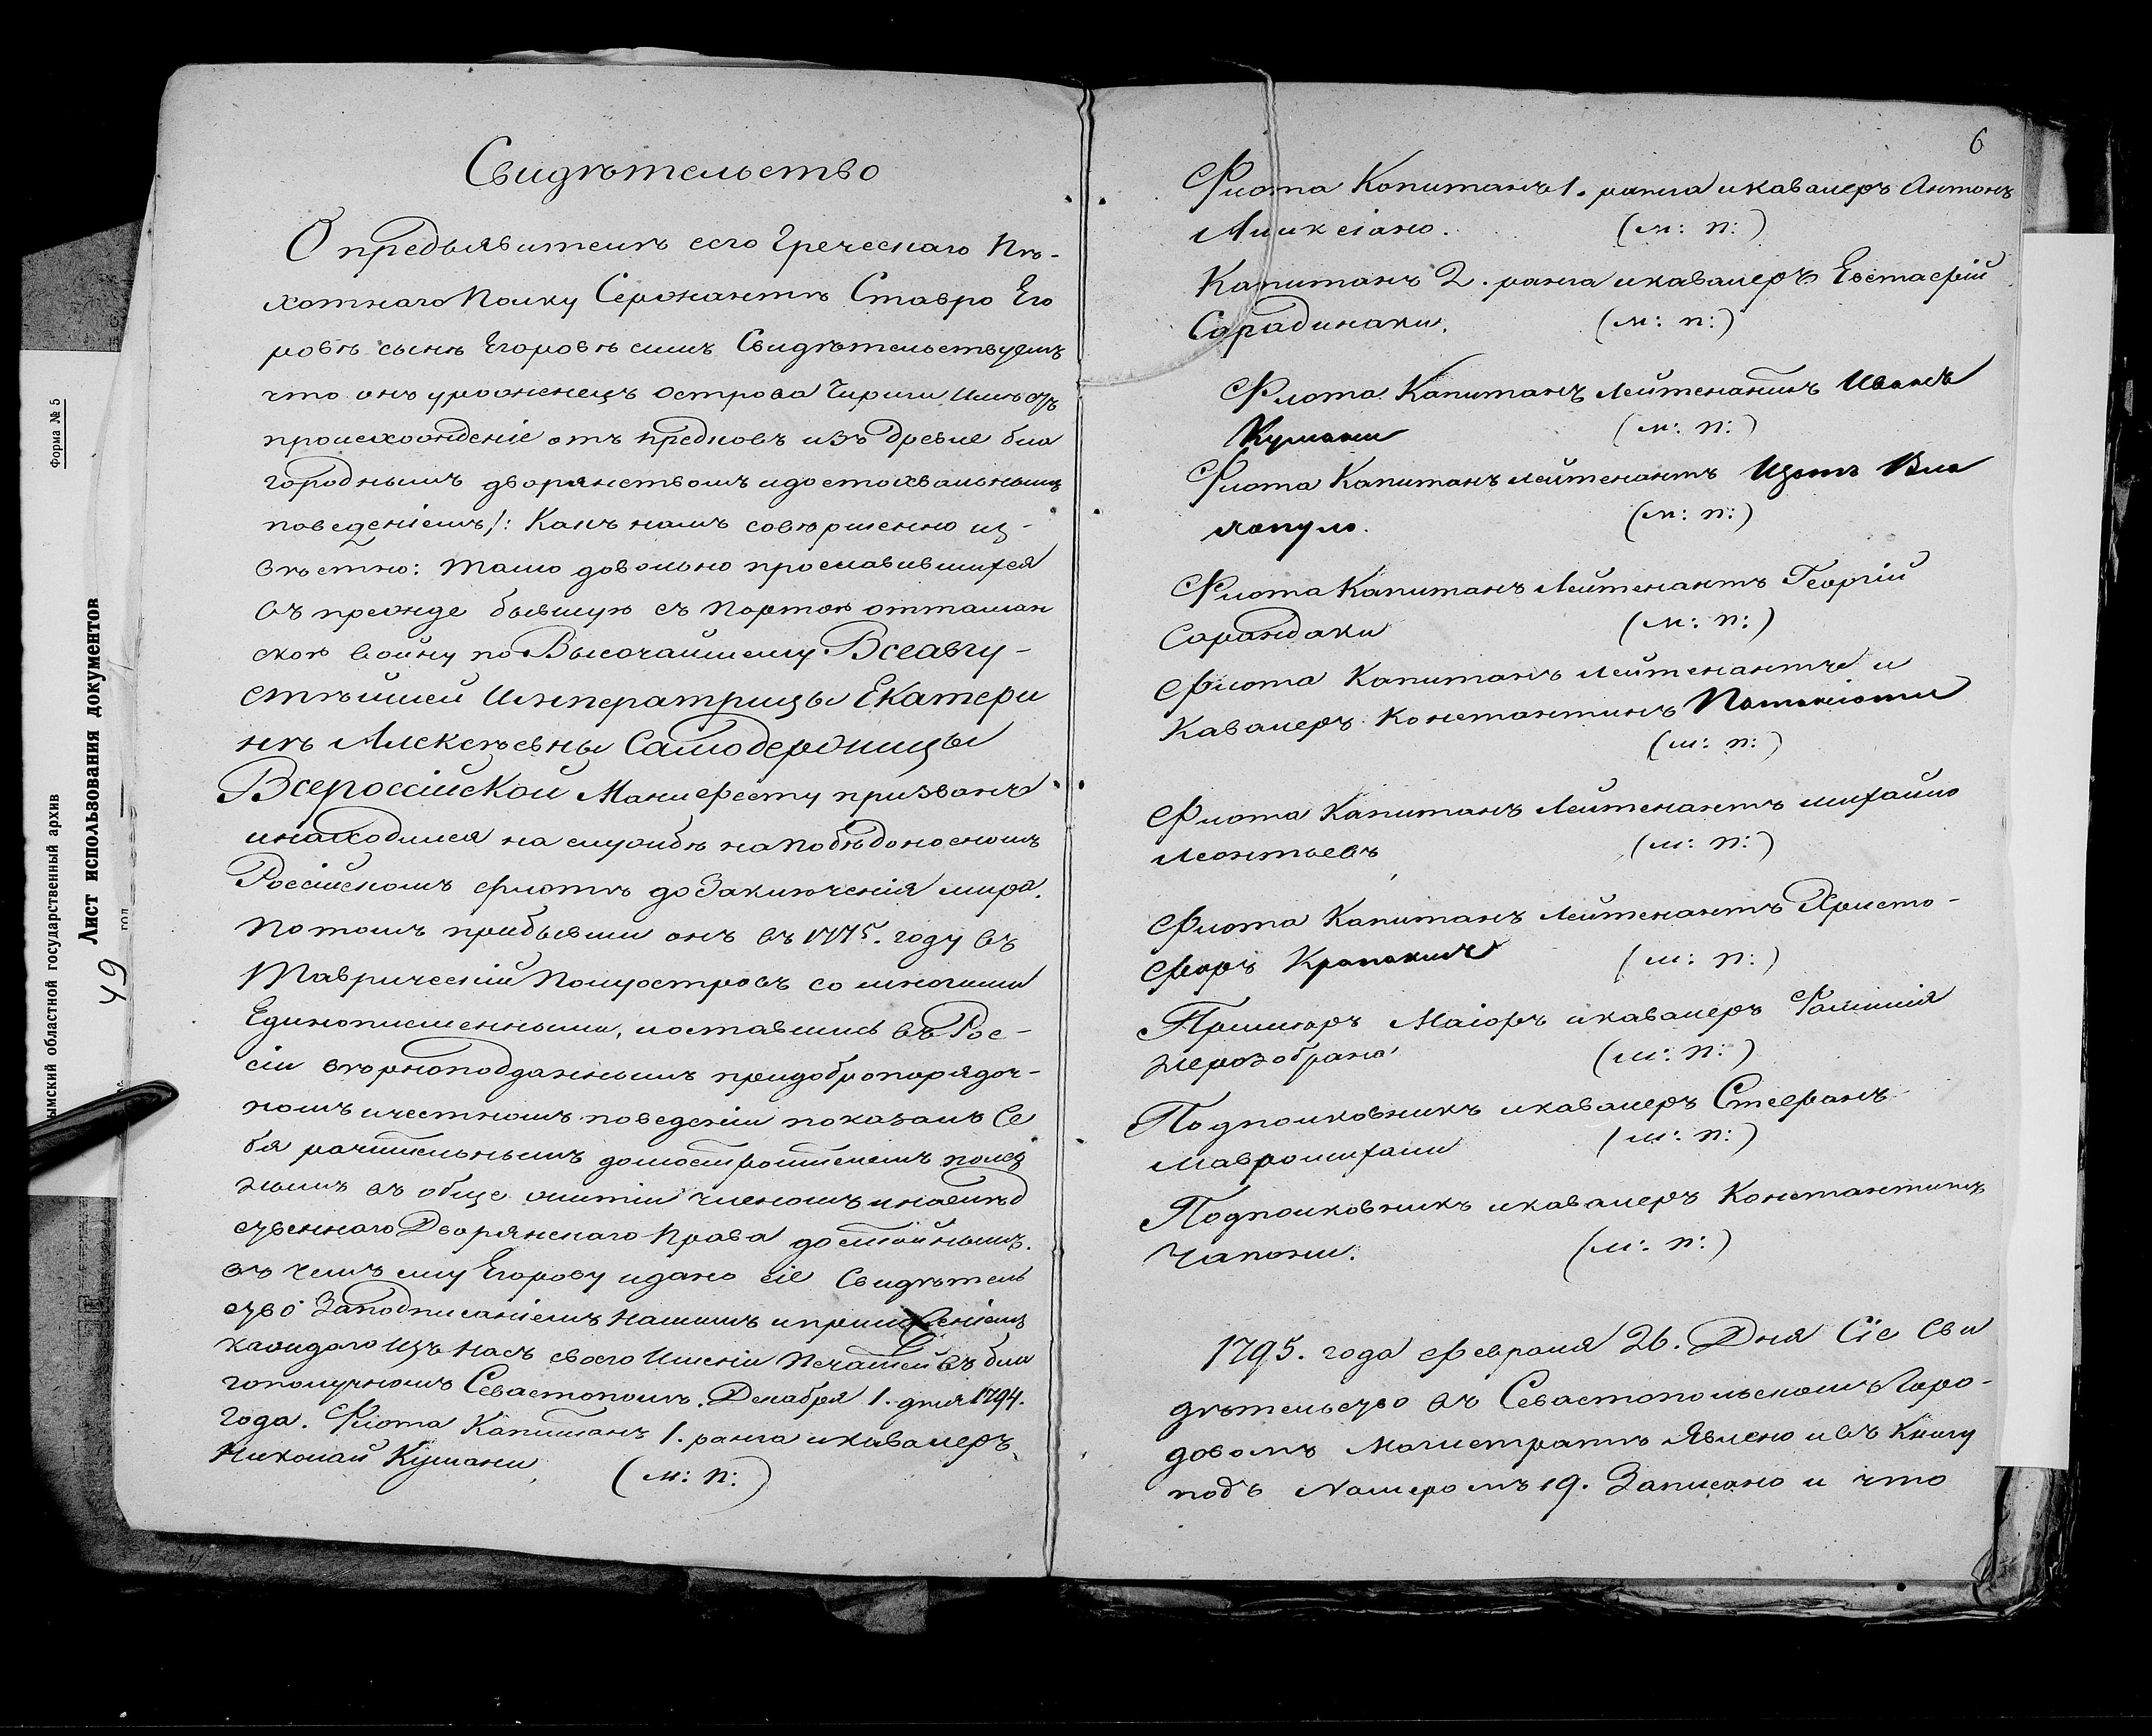 Свидѣтельство
О предъявителѣ сего Греческаго Пѣ-
хотнаго Полку Сержантѣ Ставро Его
ровѣ сынѣ Егоровѣ симъ Свидѣтельствуемъ
что онъ уроженецъ острова
происхожденіе отъ предковъ изъ древле бла
городнымъ дворянствомъ и достохвальнымъ
поведеніемъ/: Какъ намъ совершенно из-
вѣстно: тамо довольно прославившихся
Въ прежде бывшую съ Портою оттаман
скою войну по Высочайшему Всеавгу-
стѣйшей Императрицы Екатери
нѣ Алексѣевны Самодержицы
Всероссійской Манифесту призванъ
и находился на службѣ на побѣдоносномъ
Россійскомъ флотѣ до Заключенія мира.
Потомъ прибывши онъ въ 1775. году въ
Таврическій Полуостровъ со многими
Единоплеменными, и оставшись въ Рос-
сіи вѣрноподданнымъ при добропорядоч-
номъ и честномъ поведеніи показалъ Се
бя рачительнымъ домостроителемъ полез
нымъ въ обще житіи членомъ и наслѣд
ственнаго Дворянскаго Права достойнымъ.
въ чемъ ему Егорову и дано сіе Свидѣтель
ство За подписаніемъ нашимъ и приложеніемъ
каждаго Изъ насъ своего Имени Печатей въ бла
гополучномъ Севастополѣ. Декабря 1. дня 1794.
года. Флота Капитанъ 1. ранга и кавалеръ
Николай Кумани (м: п:)
6
Флота Капитанъ 1. ранга и кавалеръ Антонъ
Алексіано. (м: п:)
Капитанъ 2. ранга и кавалеръ Евстафій
Сарадинаки. (м: п:)
Флота Капитанъ Лейтенантъ Иванъ
Кумани (м: п:)
Флота Капитанъ лейтенантъ Вла
хопуло. (м: п:)
Флота Капитанъ Лейтенантъ Георгій
Сарандаки (м: п:)
Флота Капитанъ лейтенантъ и
Кавалеръ Константинъ Патаніоти
(м: п:)
Флота Капитанъ Лейтенантъ михайло
Леонтьевъ (м: п:)
Флота Капитанъ Лейтенантъ Христо-
форъ (м: п:)
Примиоръ Маіоръ и кавалеръ
(м: п:)
Подполковникъ и кавалеръ Стефанъ
Мавромихали (м: п:)
Подполковникъ и кавалеръ Константинъ
Чапони. (м: п:)
1795. года февраля 26. Дня Сіе Сви
дѣтельство въ Севастопольскомъ Горо-
довомъ Магистратѣ Явлено и въ Книгу
подъ Номеромъ 19. Записано и что
Форма № 5
ымский областной государственный архив
Лист использования документов
49
год